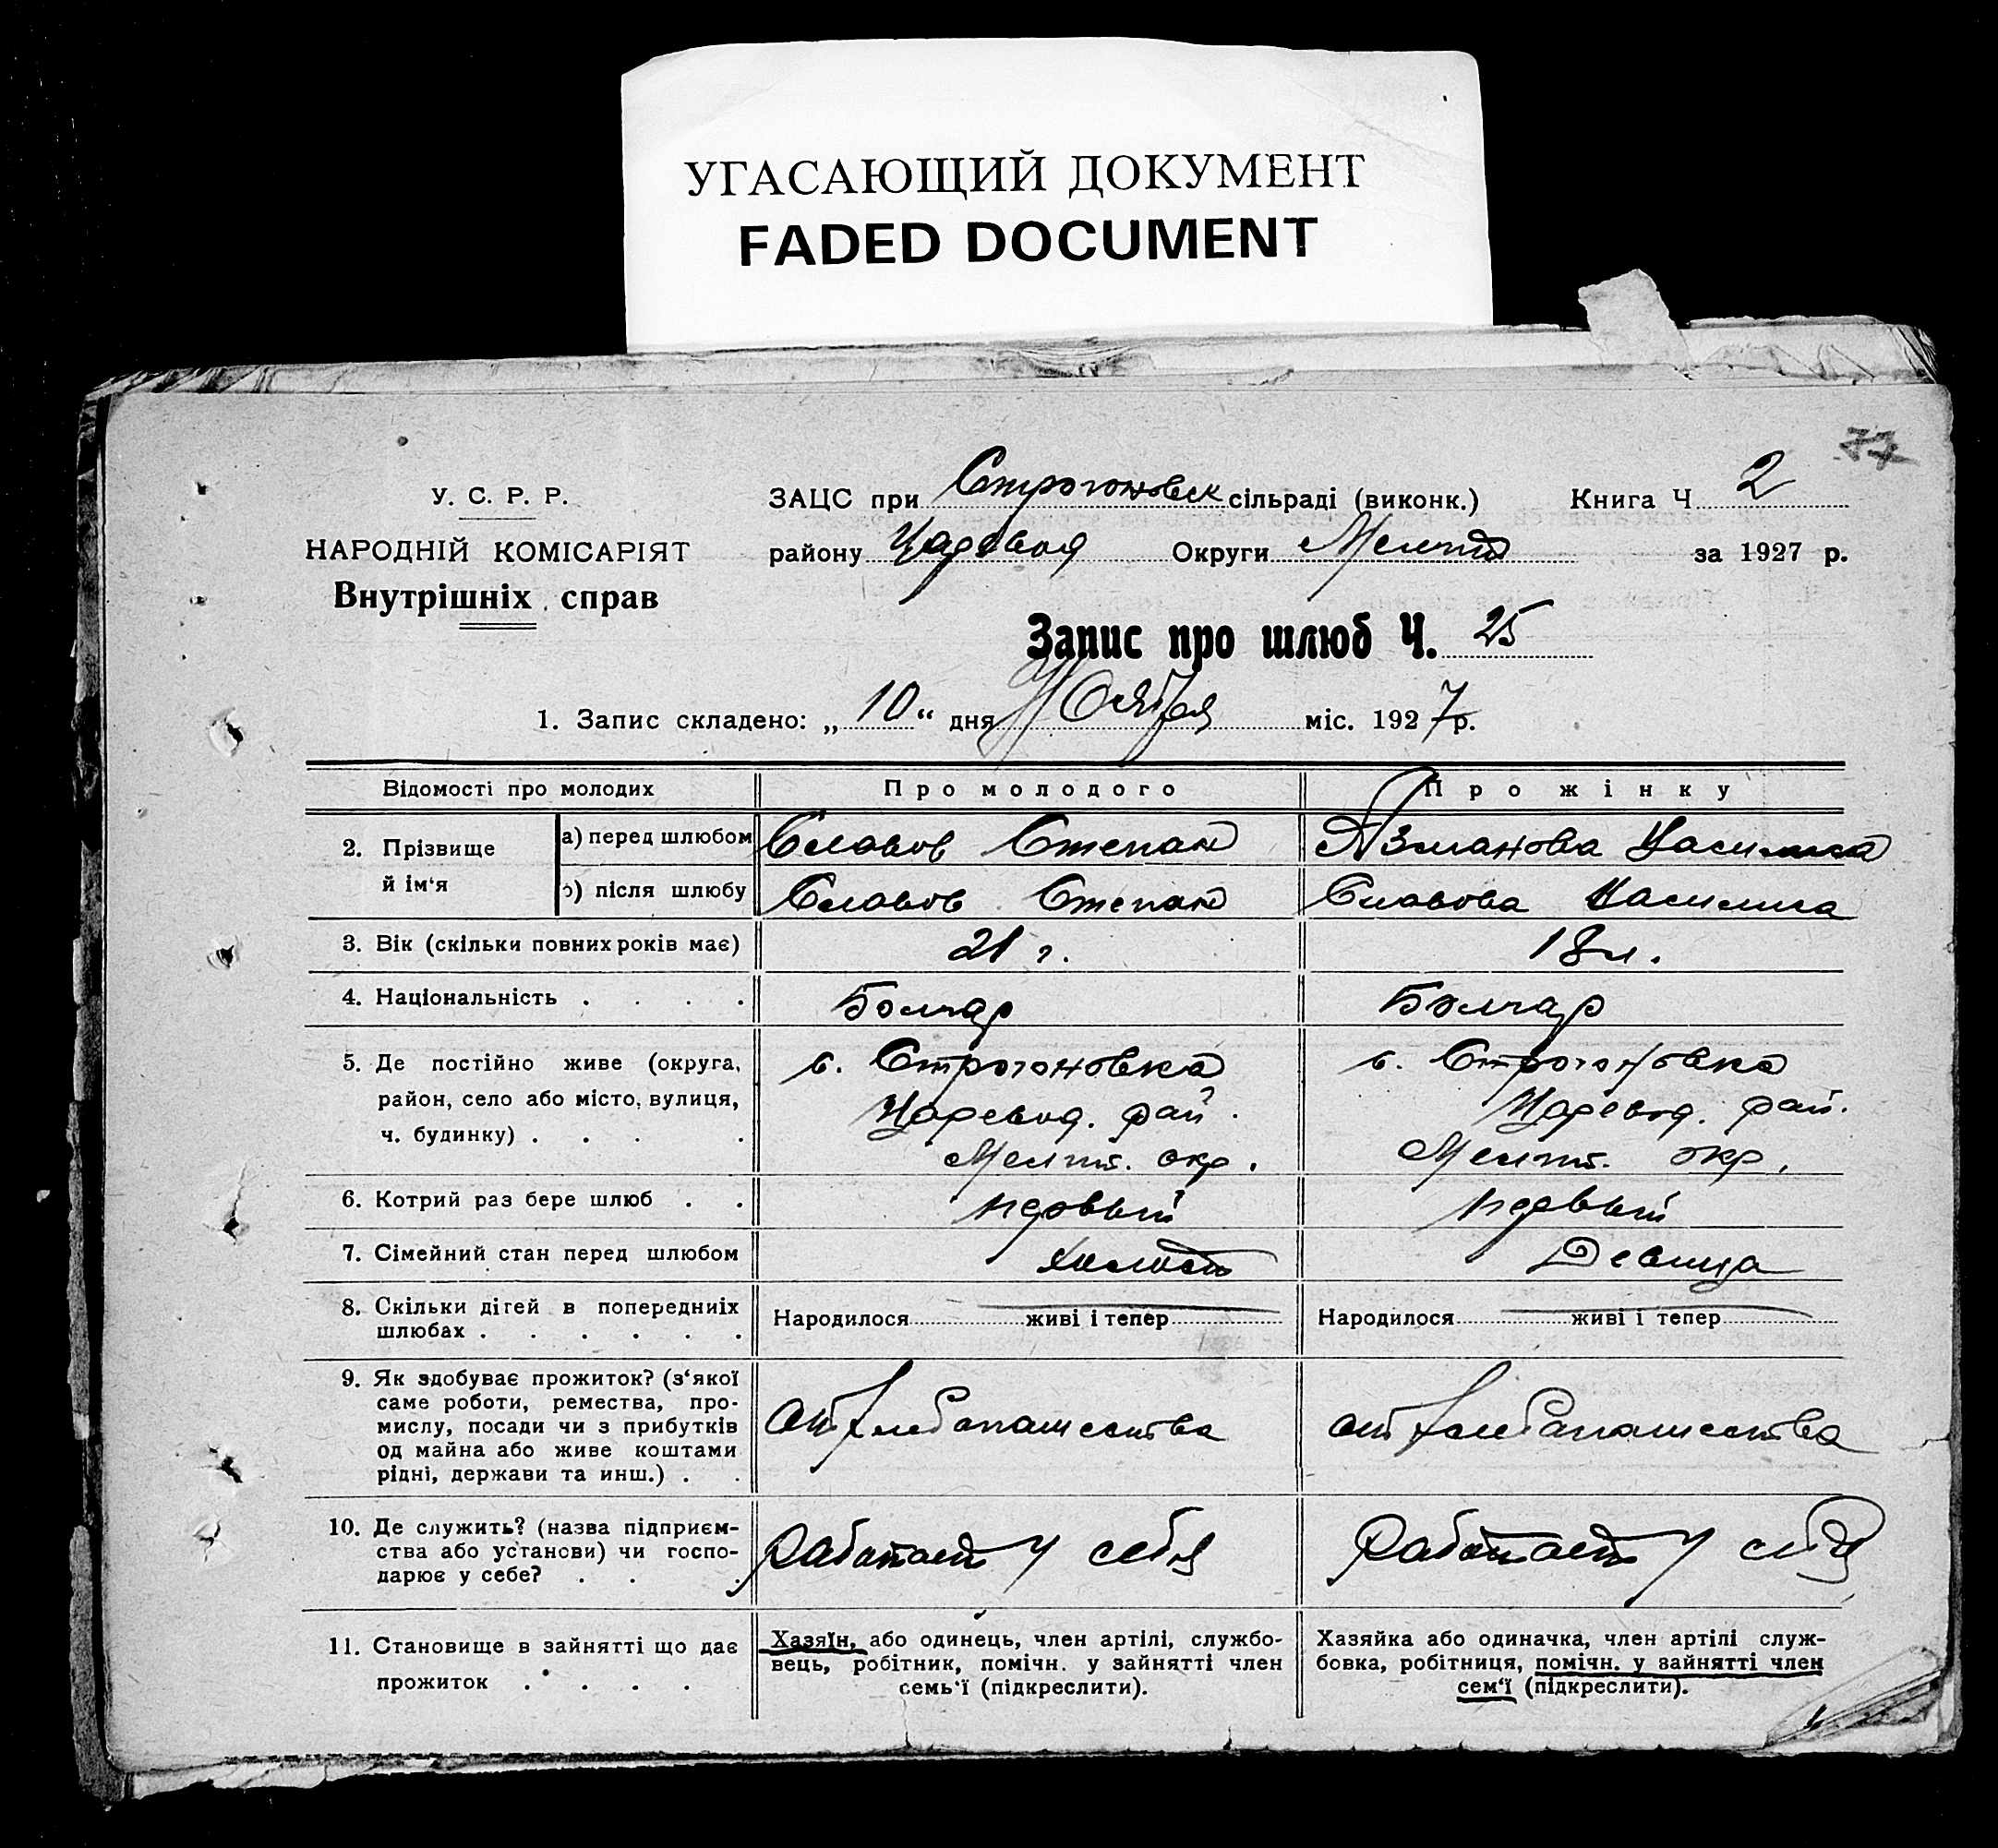 УГАСАЮЩИЙ ДОКУМЕНТ
FADED DOCUMENT
77
У. С. Р. Р.
НАРОДНІЙ КОМІСАРІЯТ
Внутрішніх справ
ЗАЦС при Строгоновск сільраді (виконк.) Книга Ч. 2
району Царевод Округи Мелит за 1927 р.
Запис про шлюб Ч. 25
1. Запис складено: „ 10 “ дня Ноября міс. 1927 р.
Відомості про молодих Про молодого Про жінку
2. Прізвище й ім‘я
а) перед шлюбом Славов Степан Азманова Василиса
б) після шлюбу Славов Степан Славова Василиса
3. Вік (скільки повних років має) 21 г. 18 л.
4. Національність . . . . Болгар Болгар
5. Де постійно живе (округа, с. Строгоновка с. Строгоновка
район, село або місто, вулиця, Царевод. рай. Царевод. рай.
ч. будинку) . . . . Мелит. окр. Мелит. окр.
6. Котрий раз бере шлюб . . первый первый
7. Сімейний стан перед шлюбом холост Девица
8. Скільки дігей в попередніх Народилося живі і тепер Народилося живі і тепер
шлюбах . . . . . .
9. Як здобуває прожиток? (з‘якої
саме роботи, ремества, про-
мислу, посади чи з прибутків от хлебопашества от хлебопашества
од майна або живе коштами
рідні, держави та инш.) . .
10. Де служить? (назва підприєм-
ства або установи) чи госпо- работает у себя работает у себя
дарює у себе? . . .
11. Становище в зайнятті що дає
прожиток . . . .
Хазяїн, або одинець, член артілі, службо-
вець, робітник, помічн. у зайнятті член
семь‘ї (підкреслити).
Хазяйка або одиначка, член артілі служ-
бовка, робітниця, помічн. у зайнятті член
сем‘ї (підкреслити).